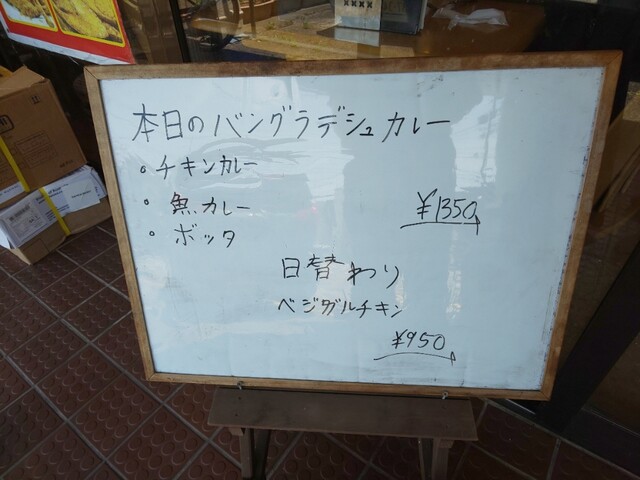 本日のバングラデシュカレー
• チキンカレー
• 魚カレー
¥1350
• ボッタ
日替わり
ベジダルチキン
¥950